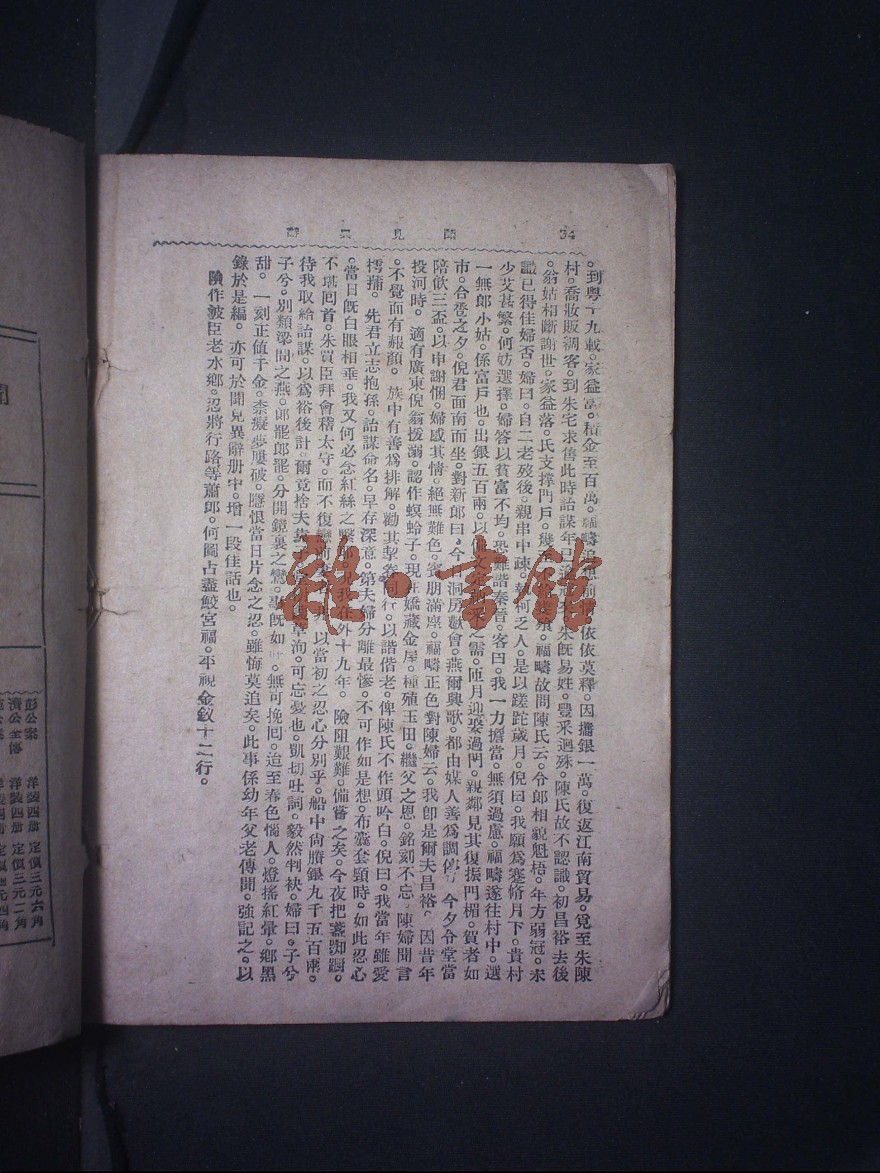 34
聞見異辭
。到粵十九載。家益富。積金至百萬。福疇追思前情。依依莫釋。因攜銀一萬。復返江南貿易。覓至朱陳
村。喬妝販綢客。到朱宅求售此時詒謀年已 朱既易姓。豐采迥殊。陳氏故不認識。初昌裕去後
。翁姑相斷謝世。家益落。氏支撐門戶。幾 福疇故問陳氏云。令郎相貌魁梧。年方弱冠。未
識已得佳婦否。婦曰。自二老歿後。親串中疎。執柯之人。是以蹉跎歲月。倪曰。我願為蹇脩月下。貴村
少艾甚繁。何妨選擇。婦答以貧富不均。恐難諧秦晉。客曰。我一力擔當。無須過慮。福疇遂往村中。選
一無郎小姑。係富戶也。出銀五百兩。以備文定 之需。匝月迎娶過門。親鄰見其復振門楣。賀者如
市。合卺之夕。倪君面南而坐。對新郎曰。今日洞房歡會。燕爾興歌。都由媒人善為調停。今夕令堂當
陪飲三盃。以申謝悃。婦感其情。絕無難色。賓朋滿座。福疇正色對陳婦云。我即是爾夫昌裕。因昔年
投河時。適有廣東倪翁援溺。認作螟蛉子。現在嬌藏金屋。種殖玉田。繼父之恩。銘刻不忘。陳婦聞言
。不覺面有赧顏。族中有善為排解。勸其挈眷同行。以諧偕老。俾陳氏不作頭吟白。倪曰。我當年雖愛
摴蒱。先君立志抱孫。詒謀命名。早存深意。第夫婦分離最慘。不可作如是想。布囊套頸時。如此忍心
。當日既白眼相垂。我又何必念紅絲之繫耶。況我在外十九年。險阻艱難。備嘗之矣。今夜把盞踟蹰。
不堪回首。朱買臣拜會稽太守。而不復戀前妻 以當初之忍心分別乎。船中尚賸銀九千五百兩。
待我取給詒謀。以為裕後計。爾竟捨夫 可忘憂也。凱切吐詞。毅然判袂。婦曰。子兮
子兮。別類梁間之燕。郎罷郎罷。分開鏡裏之鸞。事既如 無可挽回。迨至春色惱人。燈搖紅暈。鄉黑
甜。一刻正值千金。柰癡夢屢破。隱恨當日片念之忍。雖悔莫追矣。此事係幼年父老傳聞。強記之。以
錄於是編。亦可於聞見異辭册中。增一段佳話也。
險作波臣老水鄉。忍將行路等蕭郎。何圖占盡鮫宮福。平視金釵十二行。
聞
彭公案 洋裝四册 定價三元六角
濟公全傳 洋裝四册 定價三元二角
龍·書館